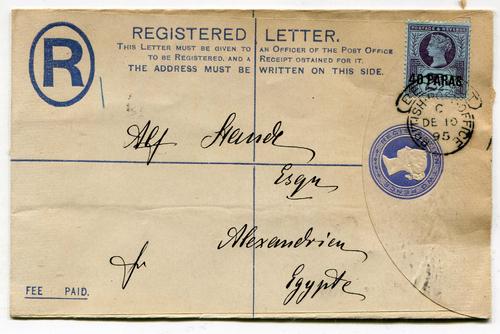 REGISTERED LETTER.
THIS LETTER MUST BE GIVEN TO AN OFFICER OF THE POST OFFICE
TO BE REGISTERED, AND A RECEIPT OBTAINED FOR IT.
THE ADDRESS MUST BE WRITTEN ON THIS SIDE.
R
POSTAGE & REVENUE
40 PARAS
BRITISH POST OFFICE
C
DE 10
95
REGISTRATION TWO PENCE
Alf
Esqu
Alexandrien
Egypte
FEE PAID.